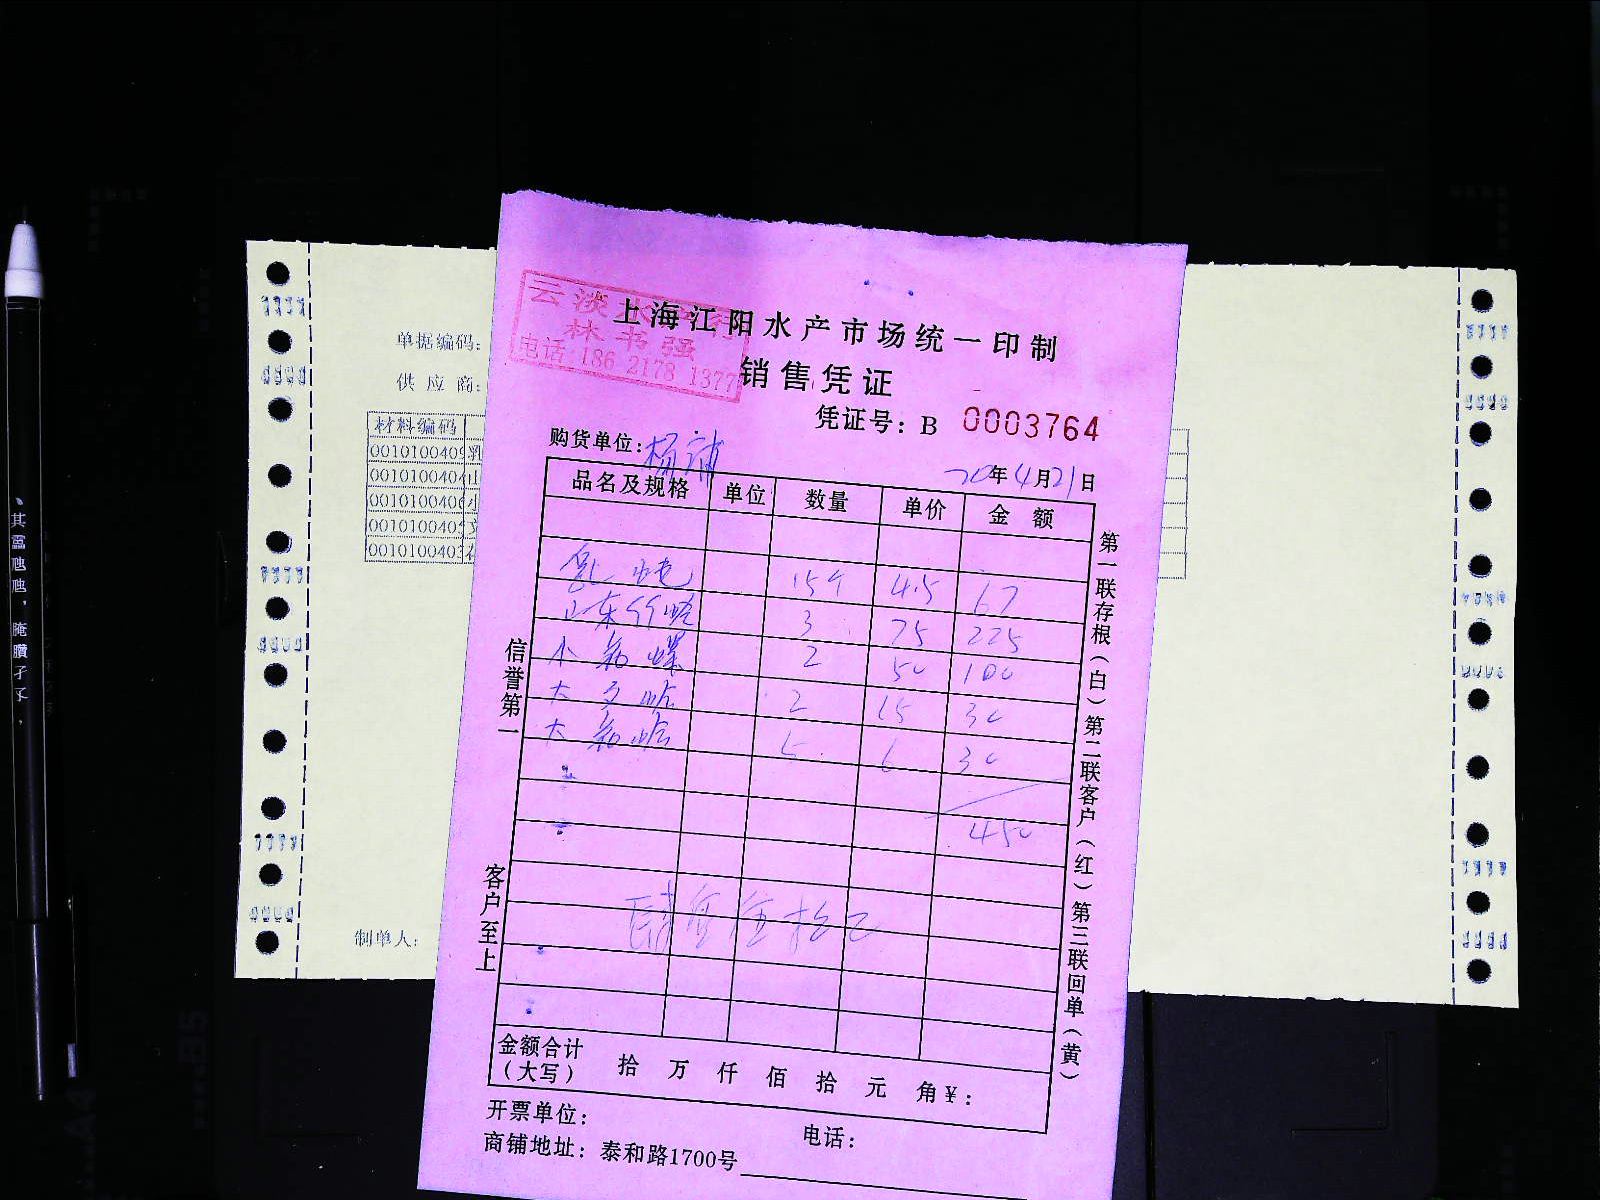 云淡水产行
林书强
电话:186 2178 1377
上海江阳水产市场统一印制
销售凭证
凭证号: B 0003764
购货单位: 杨浦
20年4月21日
品名及规格 单位 数量 单价 金 额
乳蛏 15个 4.5 67
山东竹蛏 3 75 225
小 螺 2 50 100
大文蛤 2 15 30
大 蛤 5 6 30
450
肆百伍拾元
金额合计
(大写) 拾 万 仟 佰 拾 元 角¥:
开票单位: 电话:
商铺地址: 泰和路1700号
信誉第一 客户至上
第一联存根(白)第二联客户(红)第三联回单(黄)
单据编码:
供 应 商:
材料编码
001010040 乳
001010040 山
001010040 小
001010040 文
001010040
制单人:
B5
A4